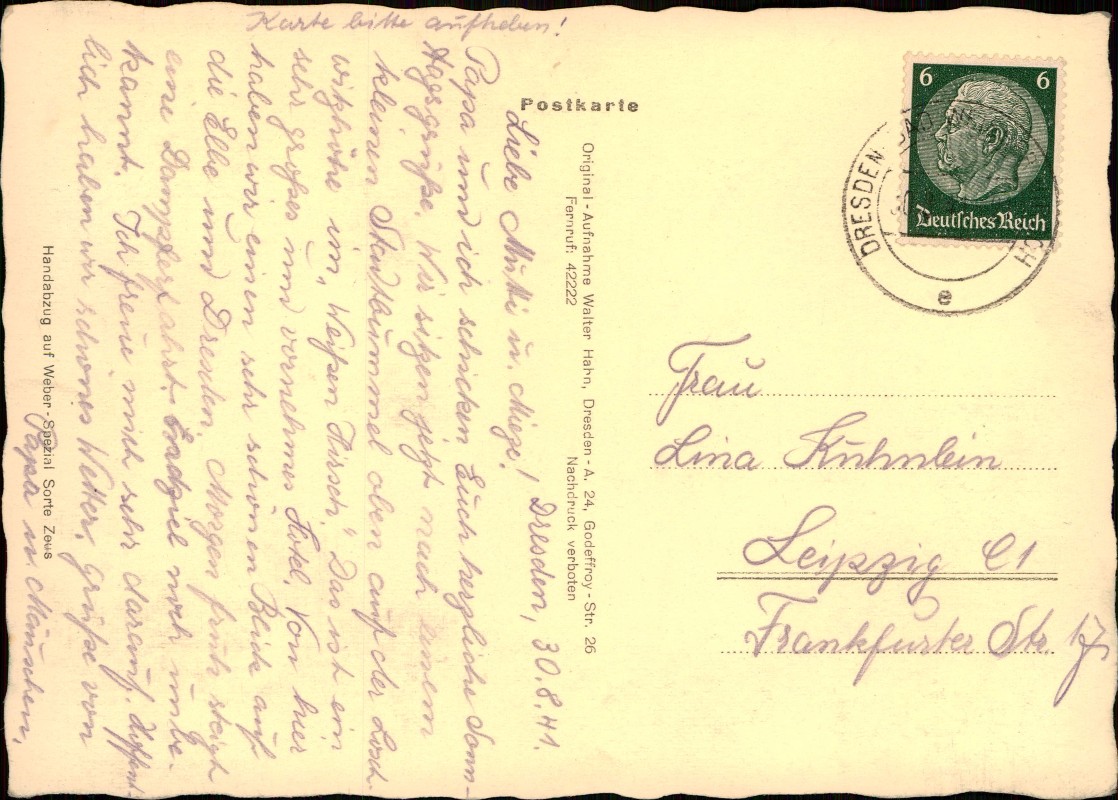 Karte bitte aufheben!
Postkarte
Dresden, 30.8.41.
Liebe Mutti u. Mieze!
Papa und ich schicken Euch herzliche Sonn-
tagsgrüße. Wir sitzen jetzt nach einem
kleinen Stadtbummel oben auf der Losch-
witzhöhe im „Weißen Hirsch“. Das ist ein
sehr großes und vornehmes Hotel. Von hier
haben wir einen sehr schönen Blick auf
die Elbe und Dresden. Morgen früh steigt
eine Dampferfahrt. Endziel noch unbe-
kannt. Ich freue mich sehr darauf. Hoffent-
lich haben wir schönes Wetter. Grüße von
Papa u. Mäuschen.
Original-Aufnahme Walter Hahn, Dresden-A. 24, Godeffroy-Str. 26
Fernruf: 42222 Nachdruck verboten
Handabzug auf Weber-Spezial Sorte Zeus
6 6
Deutsches Reich
DRESDEN-BAD
e
Frau
Lina Kühnlein
Leipzig C1
Frankfurter Str.